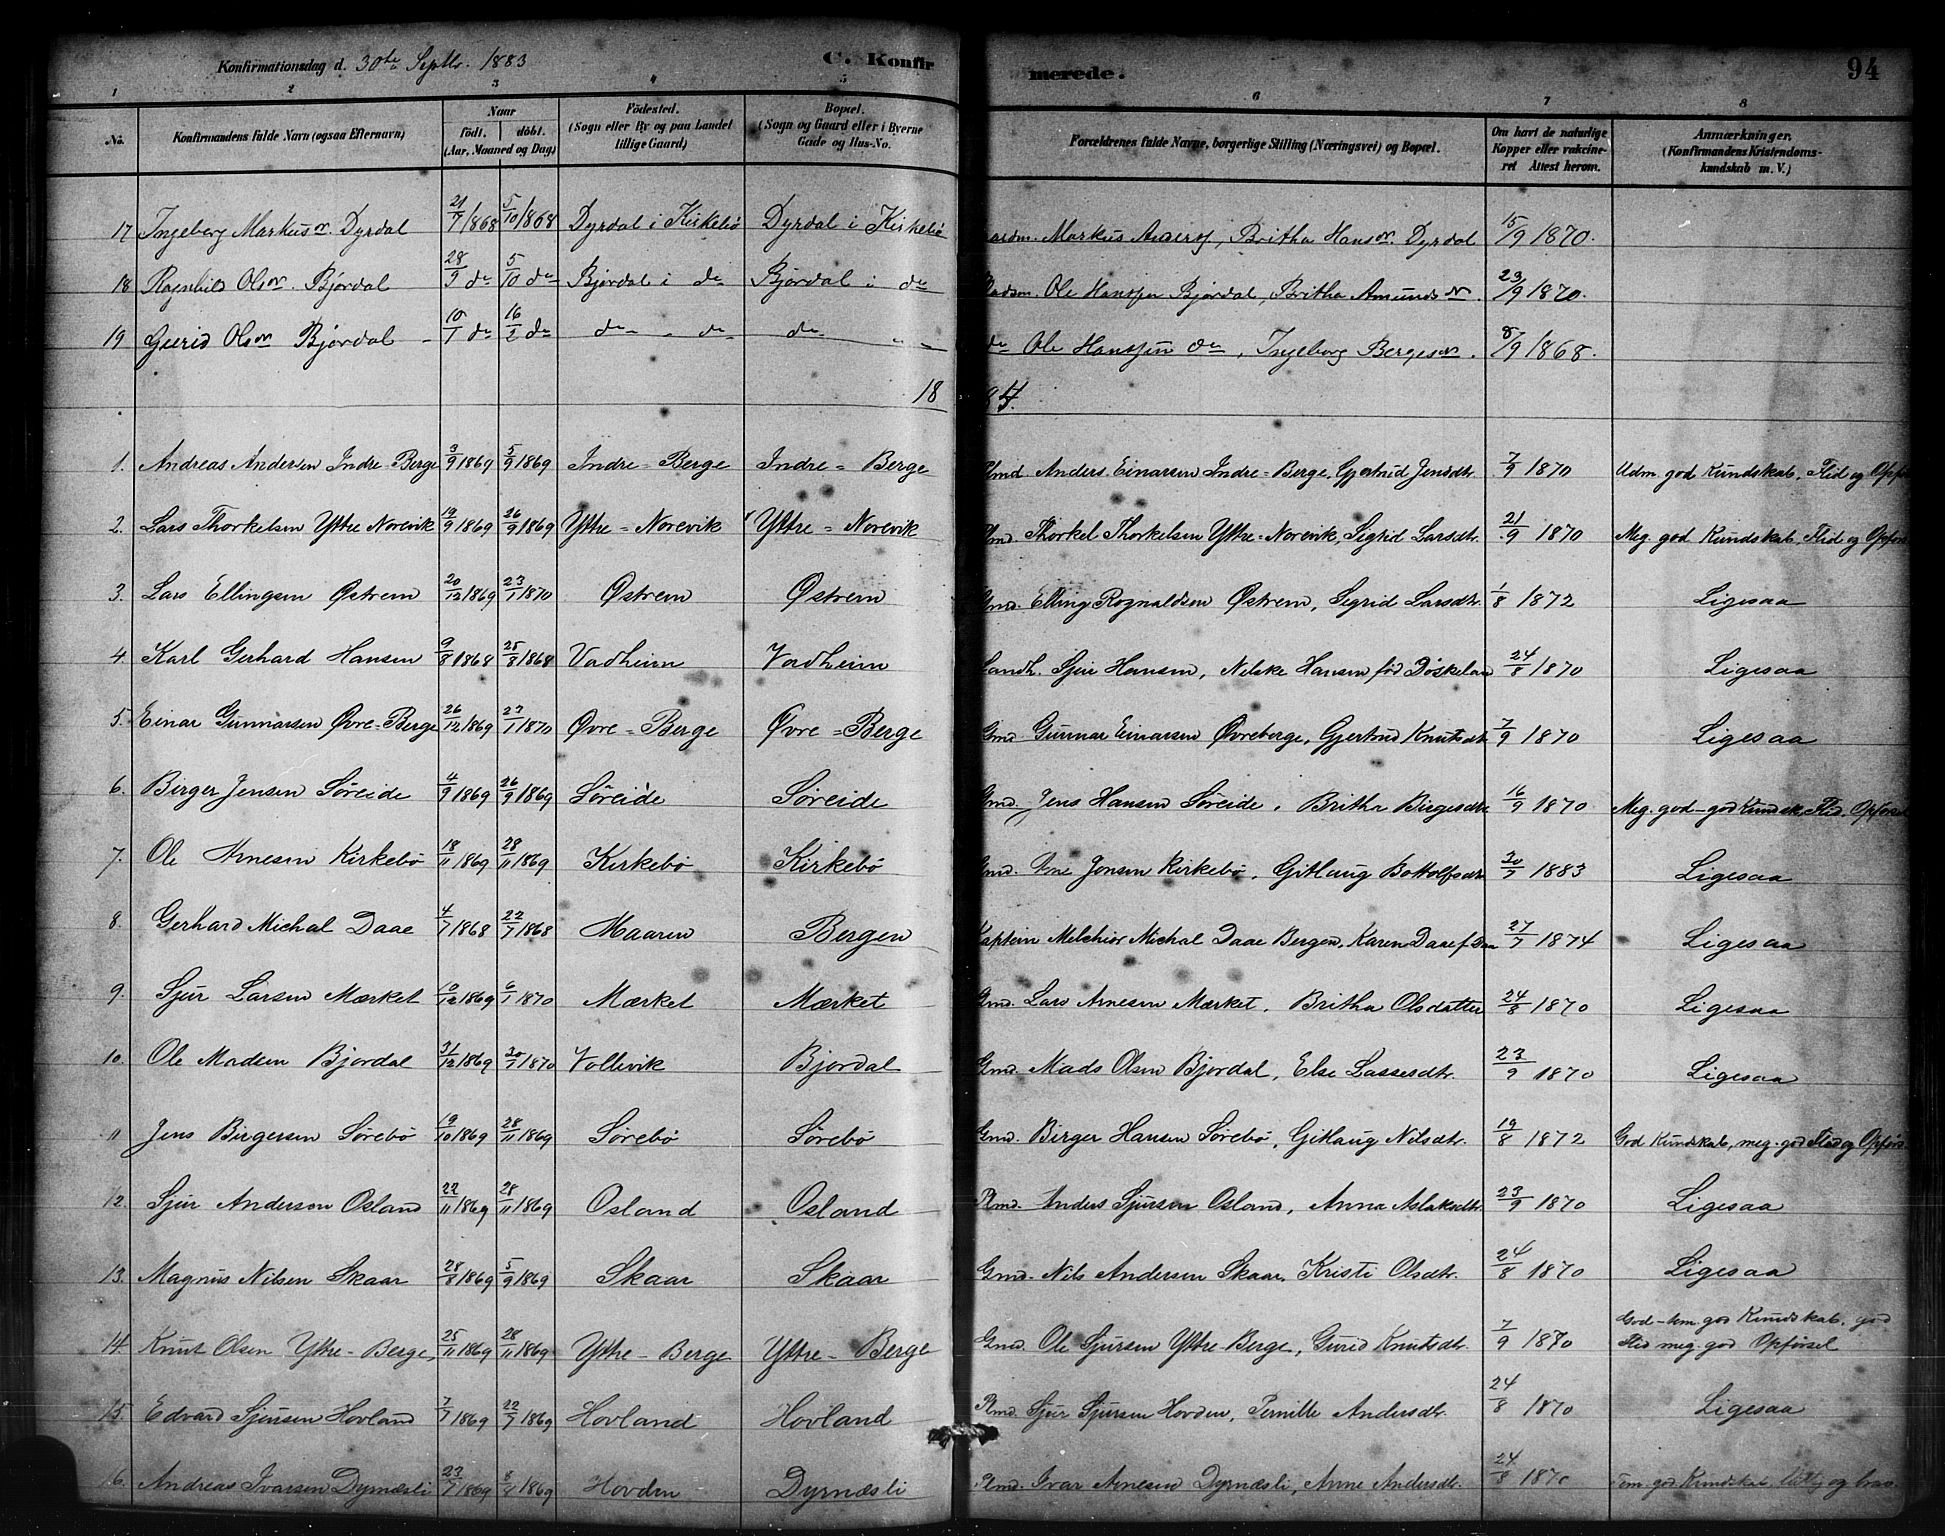 Konfirmationsdag d. 30te Septbr. 1883 C. Konfirmerede. 94
1 2 3 4 5 6 7 8
No. Konfirmandens fulde Navn (ogsaa Efternavn) Naar født. døbt. (Aar, Maaned og Dag) Fødested. (Sogn eller By og paa Landet tillige Gaard) Bopæl. (Sogn og Gaard eller i Byerne Gade og Hus-No. Forældrenes fulde Navne, borgerlige Stilling (Næringsvei) og Bopæl. Om havt de naturlige Kopper eller vakcineret Attest herom. Anmærkninger. (Konfirmandens Kristendomskundskab m. V.)
17 Ingeborg Markusdr. Dyrdal 21/9 1868 5/10 1868 Dyrdal i Kirkebø Dyrdal i Kirkebø Markus Anders, Britha Hansdr. Dyrdal 15/9 1870.
18 Ragnhild Olsdr. Bjørdal 28/9 do 5/10 do Bjørdal i do Bjørdal i do Pladsm. Ole Hanssen Bjørdal, Britha Amundsdr. 23/9 1870.
19 Gurid Olsdr Bjørdal 10/1 do 16/2 do do do do do Ole Hanssen do, Ingeborg Bergesdr. 8/9 1868.
1884.
1. Andreas Andersen Indre-Berge 3/9 1869 5/9 1869 Indre=Berge Indre=Berge Plmd. Anders Einarsen Indre=Berge, Gjertrud Jensdtr. 7/9 1870 Udm. god Kundskab, Flid og Opførs
2. Lars Thorkelsen Yttre Norevik 19/9 1869 26/9 1869 Yttre=Norevik Yttre=Norevik Plmd. Thorkel Thorkelsen Yttre-Norevik, Sigrid Larsdtr. 21/9 1870 Meg. god Kundskab, Flid og Opførs
3. Lars Ellingsen Østrem 20/12 1869 23/1 1870 Østrem Østrem Gmd. Elling Rognaldsen Østrem, Sigrid Larsdtr. 1/8 1872 Ligesaa
4. Karl Gerhard Hansen 9/8 1868 25/8 1868 Vadheim Vadheim Landh. Sjur Hansen, Nilske Hansen fød Døskeland 24/8 1870 Ligesaa
5. Einar Gunnarsen Øvre-Berge 26/12 1869 23/1 1870 Øvre=Berge Øvre=Berge Gmd. Gunnar Einarsen Øvreberge, Gjertrud Knutsdtr 7/9 1870 Ligesaa
6. Birger Jensen Søreide 4/9 1869 26/9 1869 Søreide Søreide Gmd. Jens Hansen Søreide, Britha Birgesdtr 16/9 1870 Meg. god-god Kundsk, Flid, Opførsel
7. Ole Arnesen Kirkebø 18/11 1869 28/11 1869 Kirkebø Kirkebø Gmd. Arne Jonsen Kirkebø, Gitlaug Bottolfsdtr 30/7 1883 Ligesaa
8. Gerhard Michal Daae 4/7 1868 22/7 1868 Maaren Bergen Kaptein Melchior Michal Daae Bergen, Karen Daae f. Daa 27/7 1874 Ligesaa
9. Sjur Larsen Mærket 10/12 1869 6/1 1870 Mærket Mærket Gmd. Lars Arnesen Mærket, Britha Olsdatter 24/8 1870 Ligesaa
10. Ole Madsen Bjordal 31/12 1869 30/7 1870 Vollevik Bjordal Gmd. Mads Olsen Bjordal, Else Lassesdtr. 23/9 1870 Ligesaa
11 Jens Birgersen Sørebø 19/10 1869 28/11 1869 Sørebø Sørebø Gmd. Birger Hansen Sørebø, Gitlaug Nilsdtr. 19/8 1872 God Kundskab, meg. god Flid og Opførs
12. Sjur Anderson Osland 22/11 1869 28/11 1869 Osland Osland Plmd. Anders Sjurson Osland, Anna Aslaksdtr. 23/9 1870 Ligesaa
13. Magnus Nilsen Skaar 28/8 1869 5/9 1869 Skaar Skaar Gmd. Nils Andersen Skaar, Kristi Olsdtr. 24/8 1870 Ligesaa
14. Knut Olsen Yttre-Berge, 25/11 1869 28/11 1869 Yttre-Berge Yttre-Berge Gmd. Ole Sjursen Yttre-Berge, Gurid Knutsdtr. 7/9 1870 God-tem. god Kundskab, god Flid meg. god Opførsel
15. Edvard Sjursen Hovland 7/7 1869 22/7 1869 Hovland Hovland Plmd. Sjur Sjursen Hovden, Pernille Andersdtr. 24/8 1870 Ligesaa
16. Andreas Ivarsen Dyrnæsli 23/7 1869 8/8 1869 Hovden Dyrnæsli Plmd. Ivar Arnesen Dyrnæsli, Anne Andersdtr. 24/8 1870 Tem. god Kundskab, og brav.